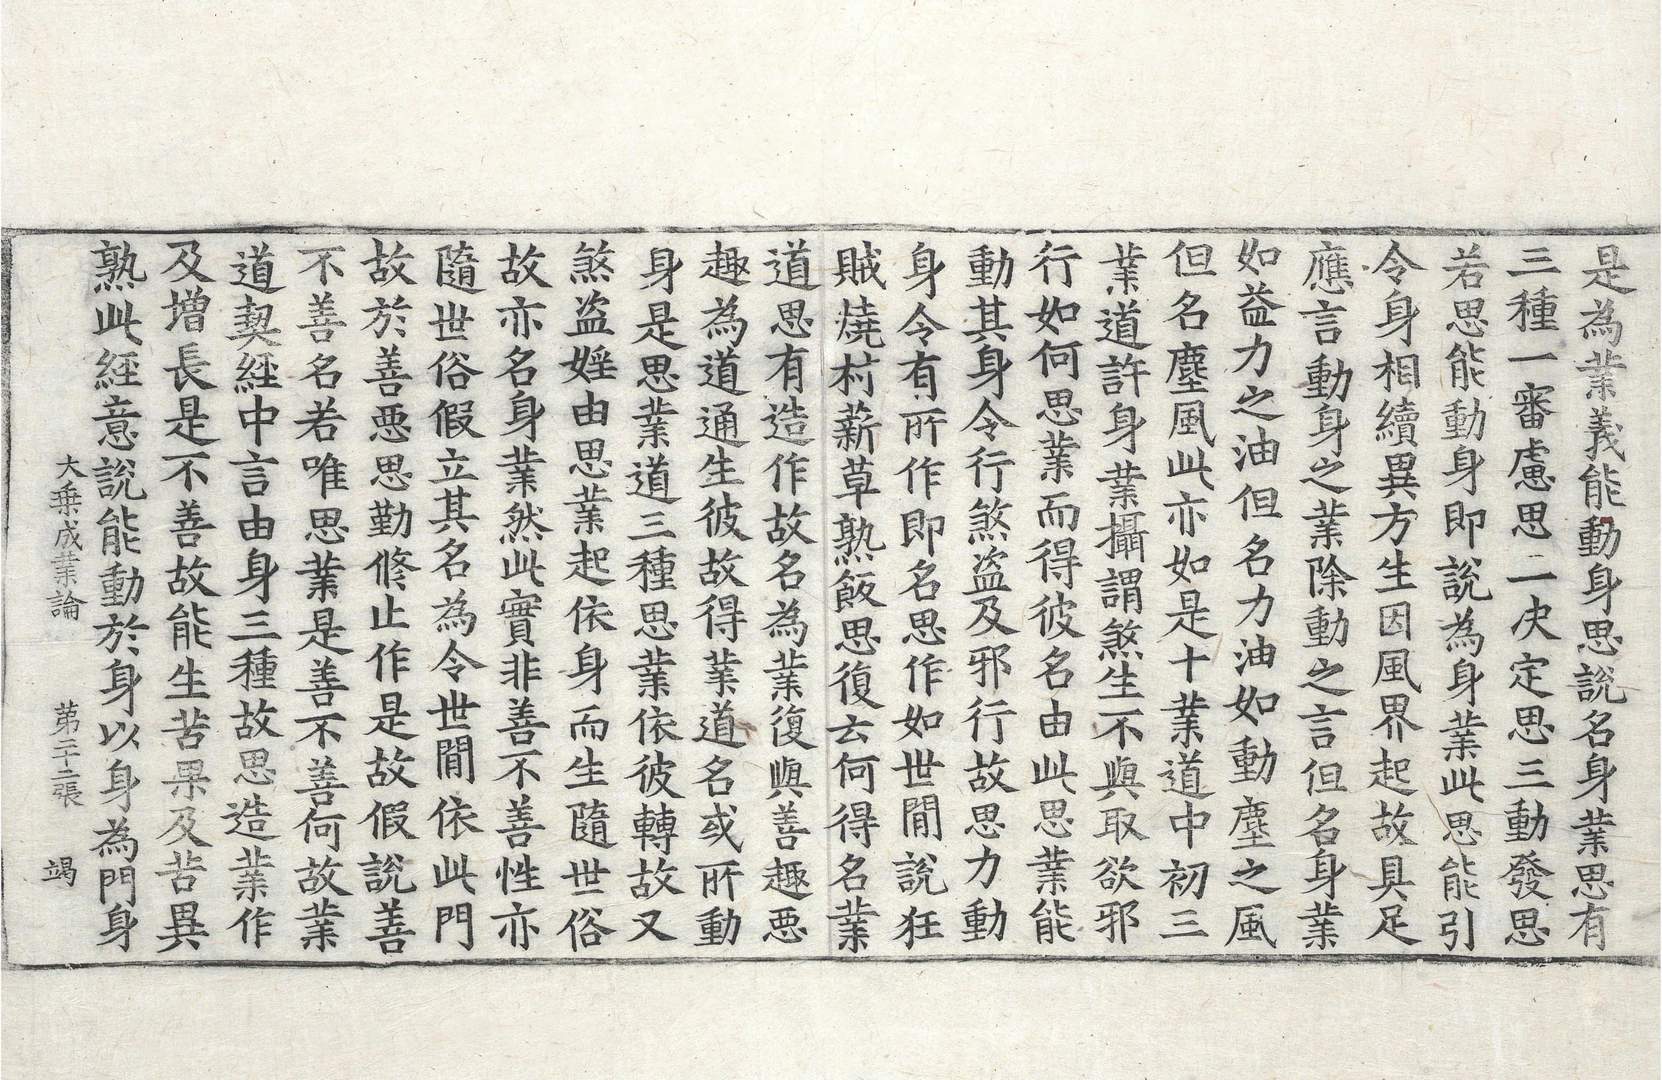 是為業義能動身思說名身業思有
三種一審慮思二决定思三動發思
若思能動身即說為身業此思能引
令身相續異方生因風界起故具足
應言動身之業除動之言但名身業
如益力之油但名力油如動塵之風
但名塵風此亦如是十業道中初三
業道許身業攝謂煞生不與取欲邪
行如何思業而得彼名由此思業能
動其身令行煞盗及邪行故思力動
身令有所作即名思作如世間說狂
賊燒村薪草熟飯思復云何得名業
道思有造作故名為業復與善趣悪
趣為道通生彼故得業道名或所動
身是思業道三種思業依彼轉故又
煞盗婬由思業起依身而生隨世俗
故亦名身業然此實非善不善性亦
隨世俗假立其名為令世間依此門
故於善悪思勤修止作是故假說善
不善名若唯思業是善不善何故業
道契經中言由身三種故思造業作
及增長是不善故能生苦果及苦異
熟此經意說能動於身以身為門身
大乗成業論　第二十二張　竭